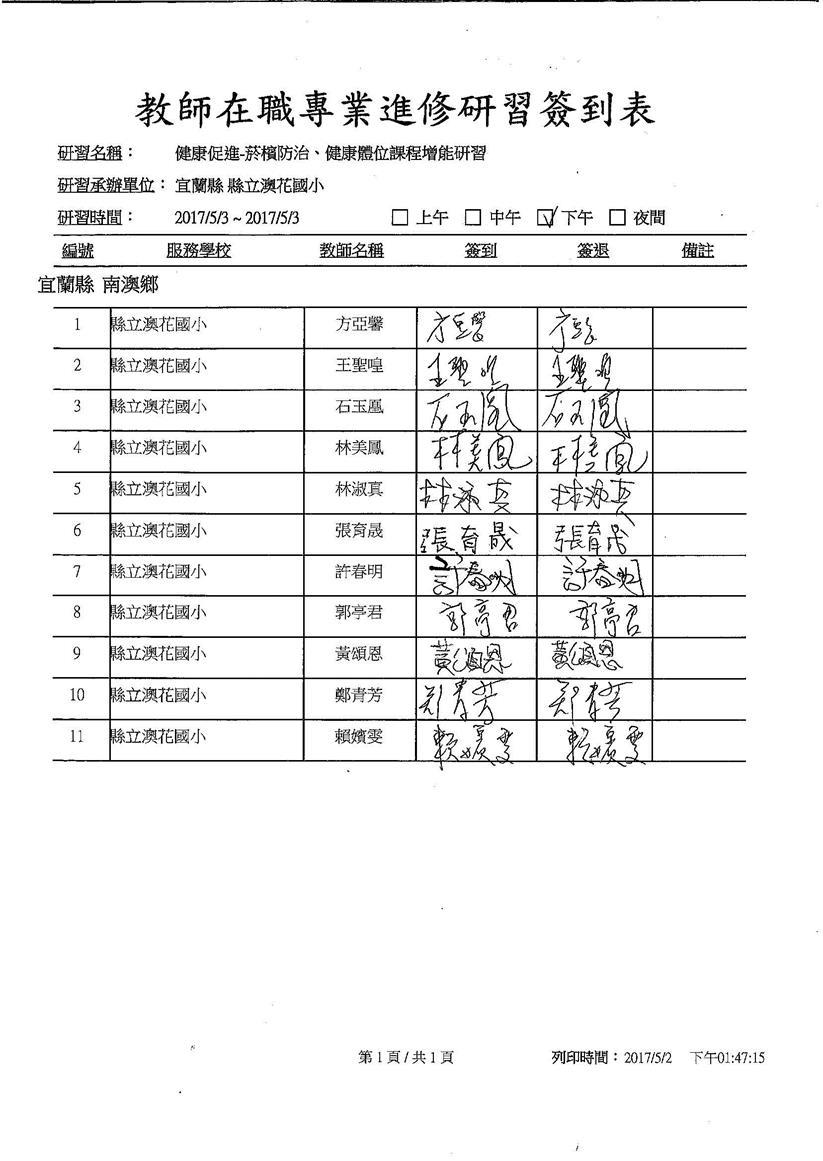 教師在職專業進修研習簽到表
研習名稱： 健康促進-菸檳防治、健康體位課程增能研習
研習承辦單位： 宜蘭縣 縣立澳花國小
研習時間： 2017/5/3 ~ 2017/5/3 □ 上午 □ 中午 ☑ 下午 □ 夜間
編號 服務學校 教師名稱 簽到 簽退 備註
宜蘭縣 南澳鄉
1 縣立澳花國小 方亞馨 方亞馨
2 縣立澳花國小 王聖喤 王聖喤 王聖喤
3 縣立澳花國小 石玉鳳 石玉鳳 石玉鳳
4 縣立澳花國小 林美鳳 林美鳳 林美鳳
5 縣立澳花國小 林淑真 林淑真 林淑真
6 縣立澳花國小 張育晟 張育晟 張育晟
7 縣立澳花國小 許春明 許春明 許春明
8 縣立澳花國小 郭亭君 郭亭君 郭亭君
9 縣立澳花國小 黃頌恩 黃頌恩 黃頌恩
10 縣立澳花國小 鄭青芳 郑青芳 郑青芳
11 縣立澳花國小 賴嬪雯 賴嬪雯 賴嬪雯
第 1 頁 / 共 1 頁 列印時間：2017/5/2 下午01:47:15